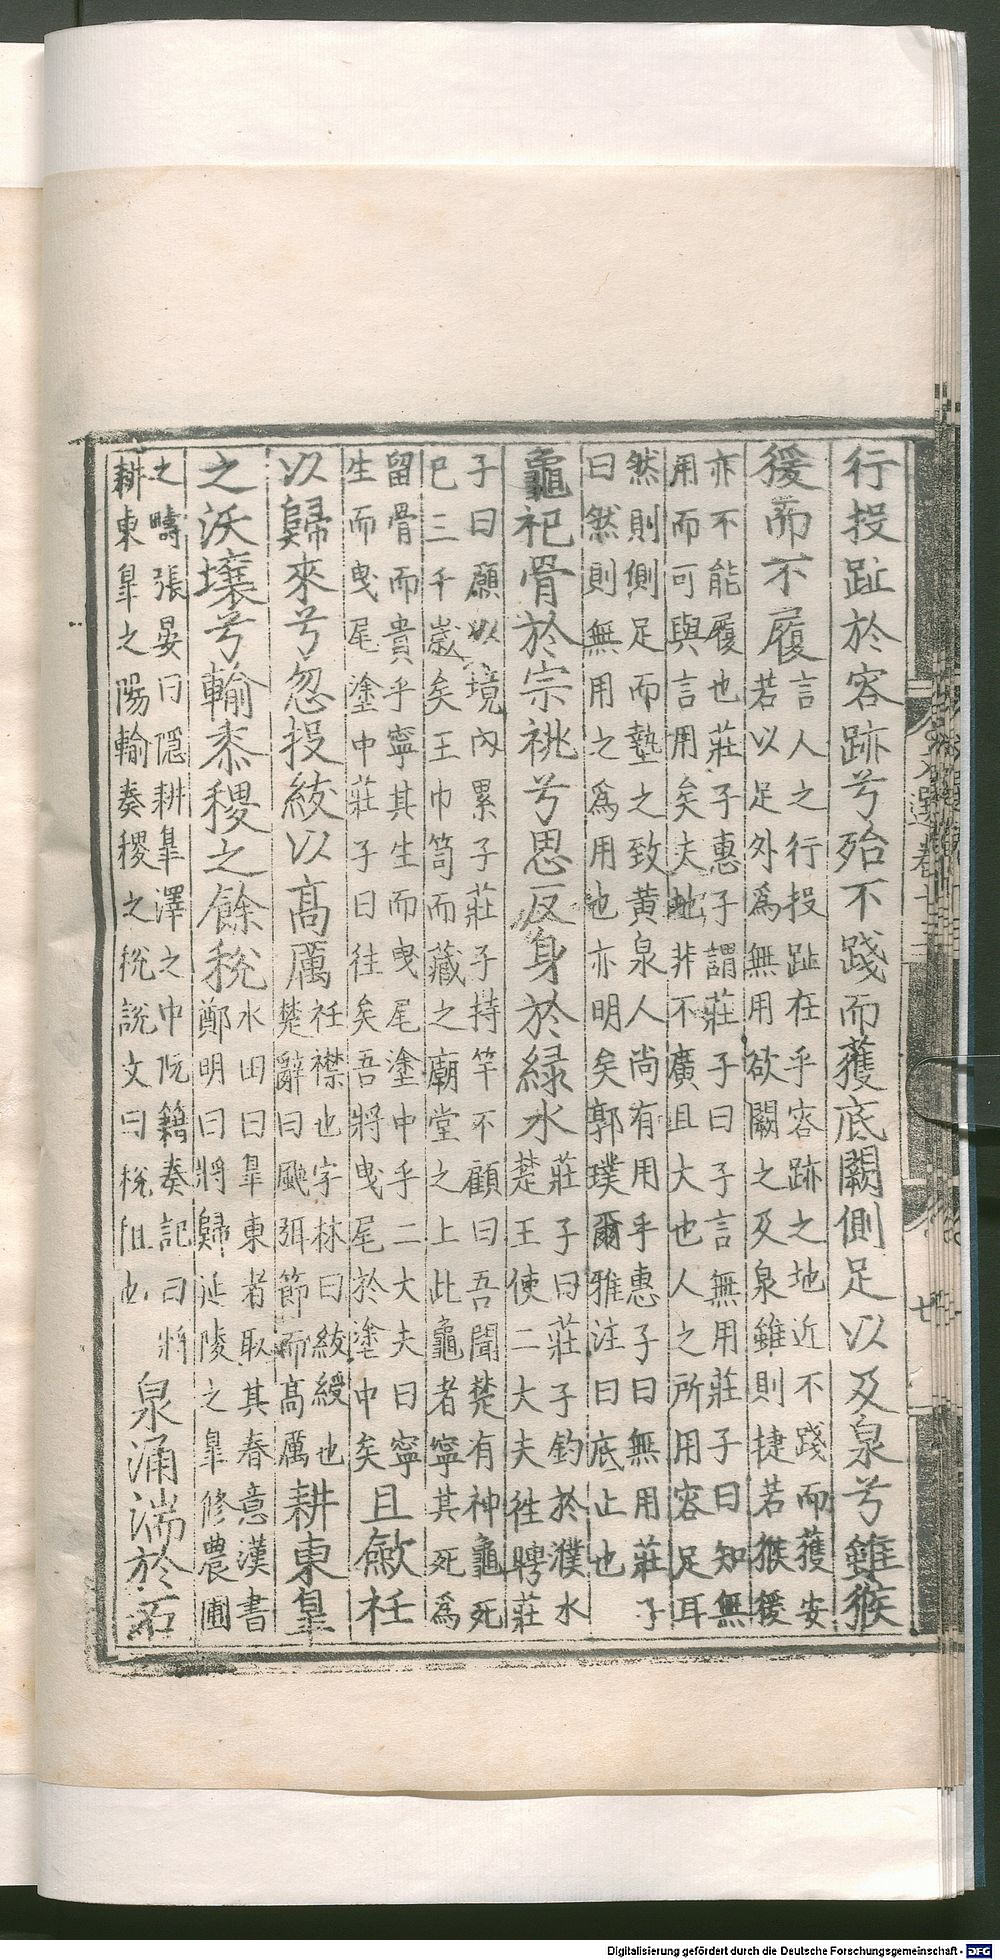 行投趾於容跡兮殆不踐而獲底闕側足以及泉兮雖猴
猨而不履
言人之行投趾在乎容跡之地近不踐而獲安
若以足外爲無用欲闕之及泉雖則捷若猴猨
亦不能履也莊子惠子謂莊子曰子言無用莊子曰知無
用而可與言用矣夫地非不廣且大也人之所用容足耳
然則側足而墊之致黃泉人尚有用乎惠子曰無用莊子
曰然則無用之爲用也亦明矣郭璞爾雅注曰底止也
龜祀骨於宗祧兮思反身於緑水
莊子曰莊子釣於濮水
楚王使二大夫往聘莊
子曰願以境內累子莊子持竿不顧曰吾聞楚有神龜死
已三千歲矣王巾笥而藏之廟堂之上此龜者寧其死爲
留骨而貴乎寧其生而曳尾塗中乎二大夫曰寧
生而曳尾塗中莊子曰往矣吾將曳尾於塗中矣
且歛衽
以歸來兮忽投紱以高厲
衽襟也字林曰紱綬也
楚辭曰颷弭節而高厲
耕東皐
之沃壤兮輸黍稷之餘稅
水田曰皐東者取其春意漢書
鄭明曰將歸延陵之皐修農圃
之疇張晏曰隱耕皐澤之中阮籍奏記曰將
耕東皐之陽輸奏稷之稅說文曰稅租也
泉涌湍於石
文選卷十三
七
Digitalisierung gefördert durch die Deutsche Forschungsgemeinschaft - DFG